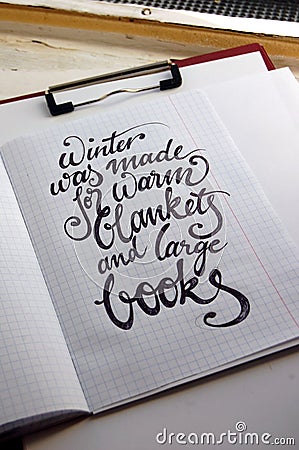 Winter
was made
for warm
blankets
and large
books
dreamstime.com